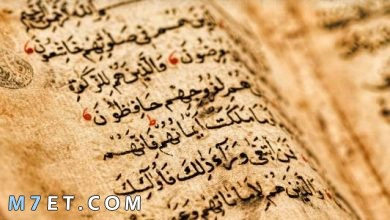 هُمْ فِي صَلٰوتِهِمْ خَاشِعُونَ
مُعْرِضُونَ وَالَّذِينَ هُمْ لِلزَّكٰوةِ
هُمْ لِفُرُوجِهِمْ حَافِظُونَ
مَا مَلَكَتْ اَيْمَانُهُمْ فَاِنَّهُمْ
ابْتَغٰى وَرَآءَ ذٰلِكَ فَاُولٰئِكَ
وَالَّذِينَ هُمْ لِاَمَانَاتِهِمْ
M7ET.COM